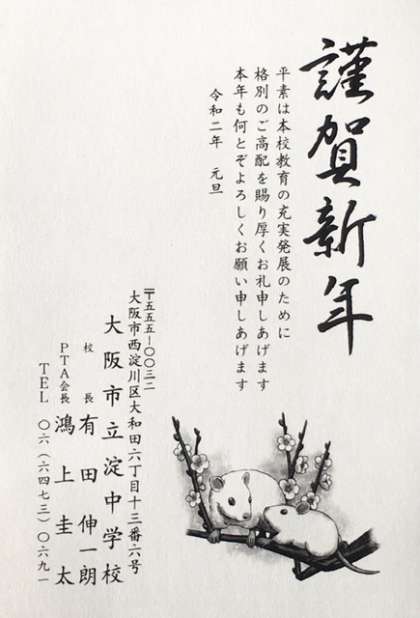 謹賀新年
平素は本校教育の充実発展のために
格別のご高配を賜り厚くお礼申しあげます
本年も何とぞよろしくお願い申しあげます
令和二年　元旦
〒五五五-〇〇三二
大阪市西淀川区大和田六丁目十三番六号
大阪市立淀中学校
校長　有田伸一朗
PTA会長　鴻上圭太
TEL　〇六(六四七三)〇六九一